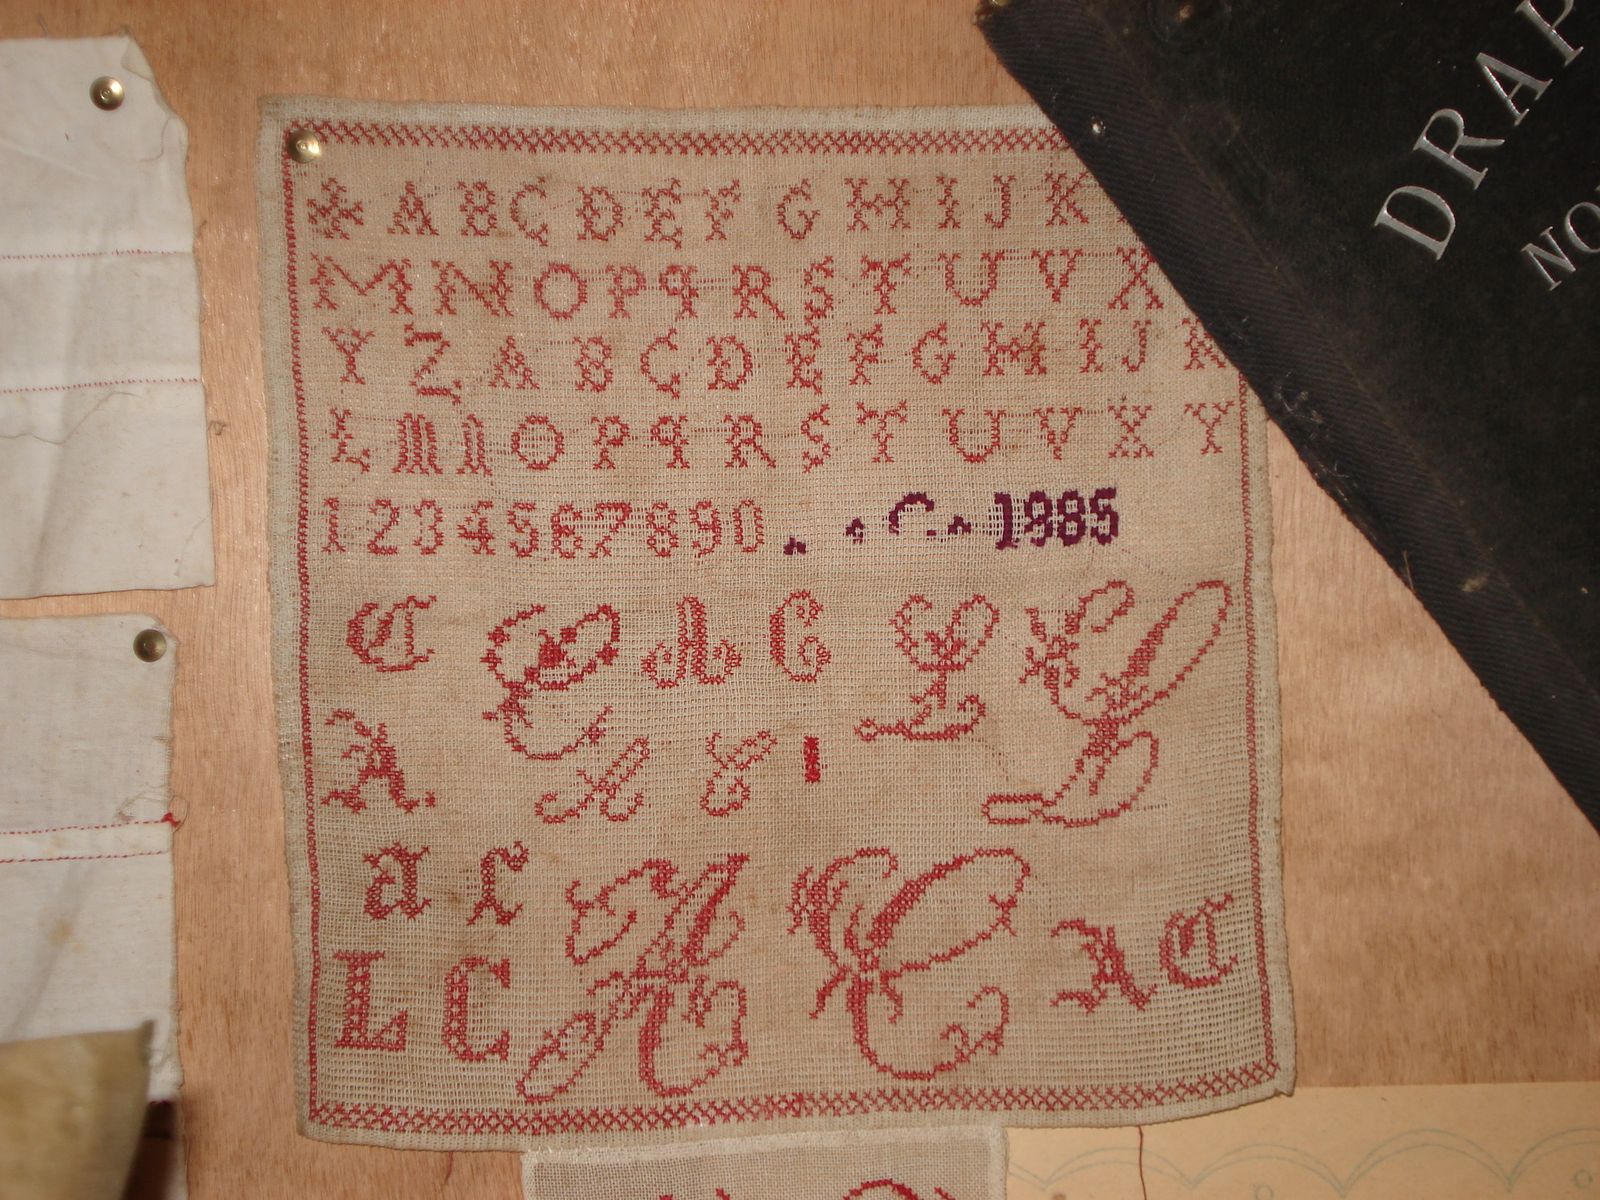 A B C D E F G H I J K
M N O P q R S T U V X
Y Z A B C D E F G H I J K
L M N O P q R S T U V X Y
1 2 3 4 5 6 7 8 9 0 . . C. 1985
C C A C L L
A. A C I
a c A C A C
L C
DRAP
NO